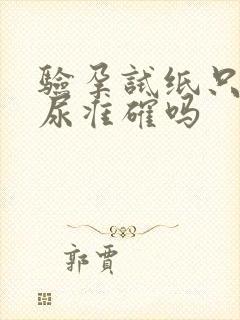 验孕试纸只
尿准确吗
郭贾